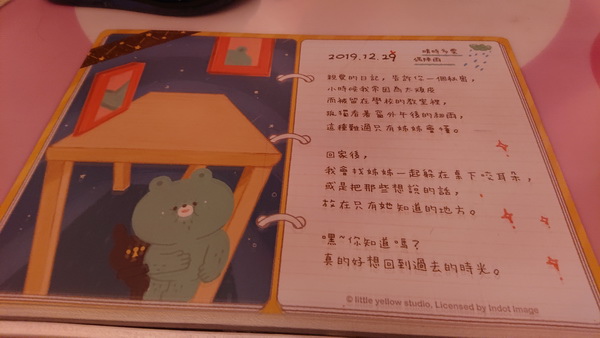 2019.12.29
晴時多雲
偶陣雨
親愛的日記，告訴你一個秘密，
小時候我常因為太頑皮
而被留在學校的教室裡，
玻璃看著窗外午後的細雨，
這種難過只有姊姊會懂。
回家後，
我會找姊姊一起躲在桌下咬耳朵，
或是把那些想說的話，
放在只有她知道的地方。
嘿~你知道嗎？
真的好想回到過去的時光。
© little yellow studio. Licensed by Indot Image